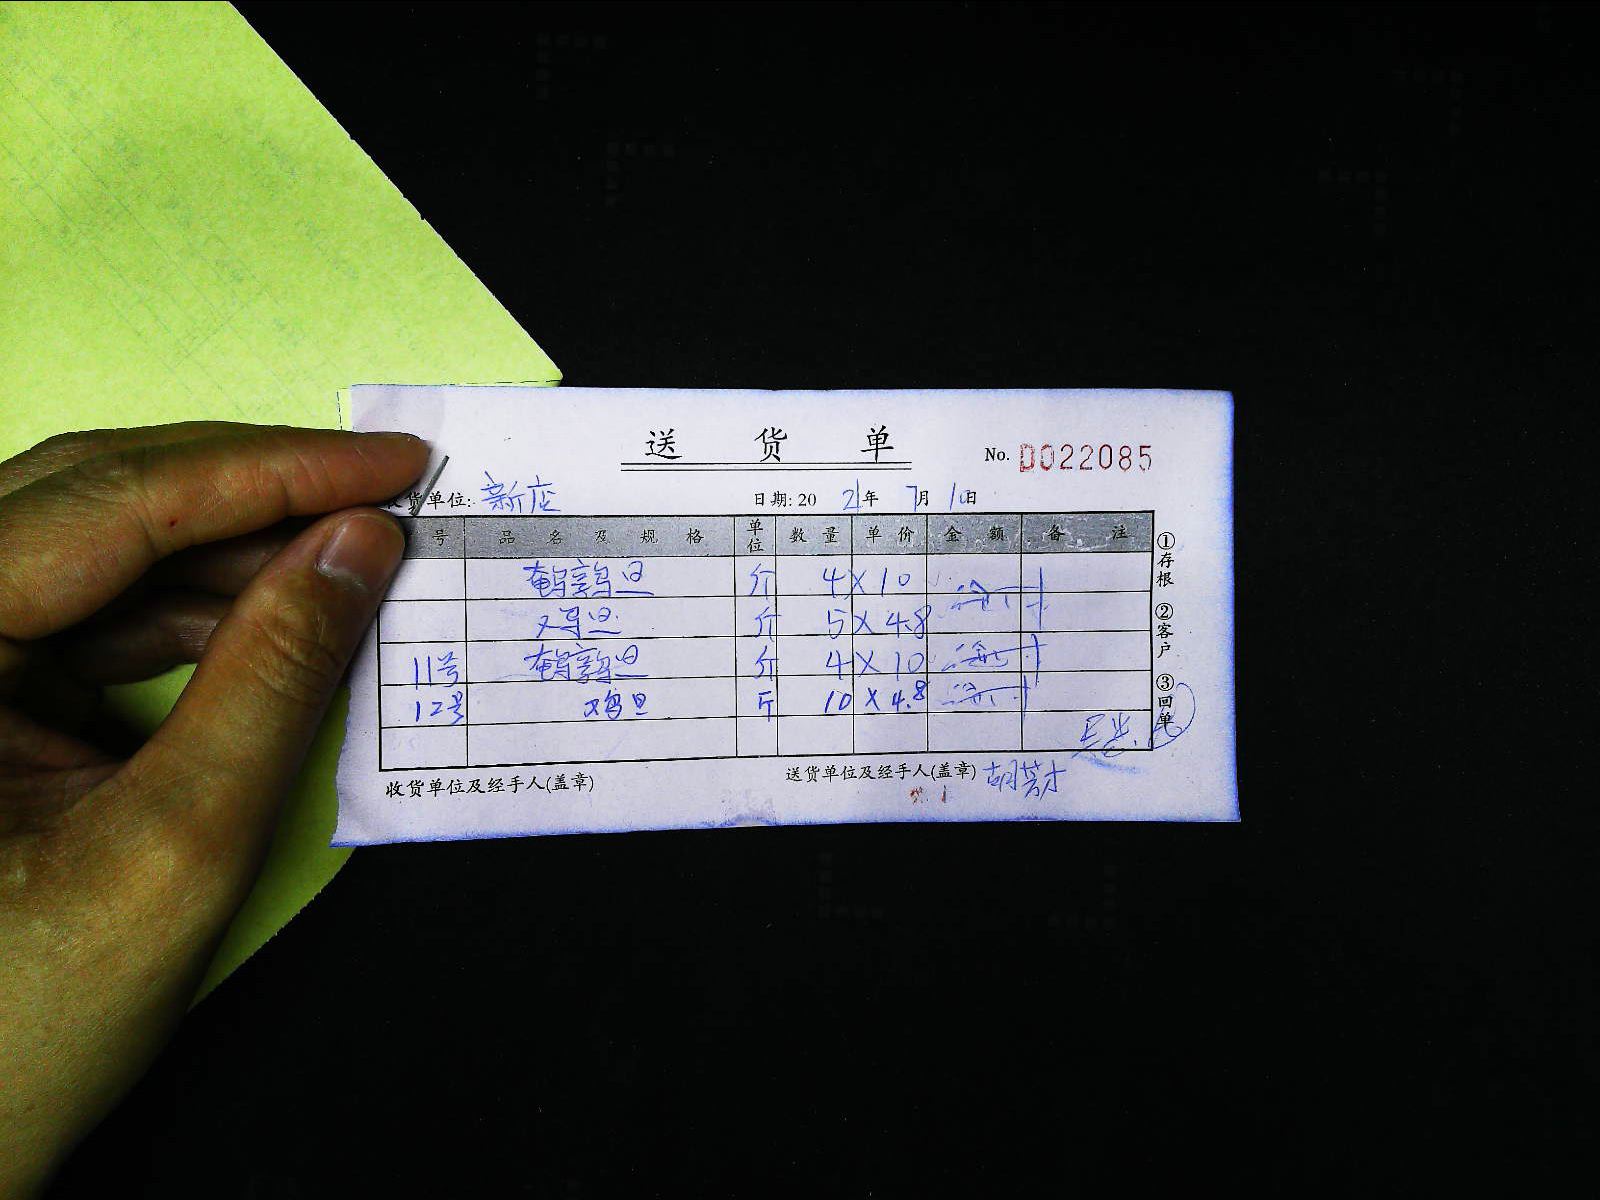 送 货 单
No. D022085
货单位: 新店 日期: 2021年 7月 10日
号 品名及规格 单位 数量 单价 金额 备注
鹌鹑旦 斤 4 × 10
鸡旦 斤 5 × 4.8
11号 鹌鹑旦 斤 4 × 10
12号 鸡旦 斤 10 × 4.8
收货单位及经手人(盖章) 送货单位及经手人(盖章)
①存根 ②客户 ③回单